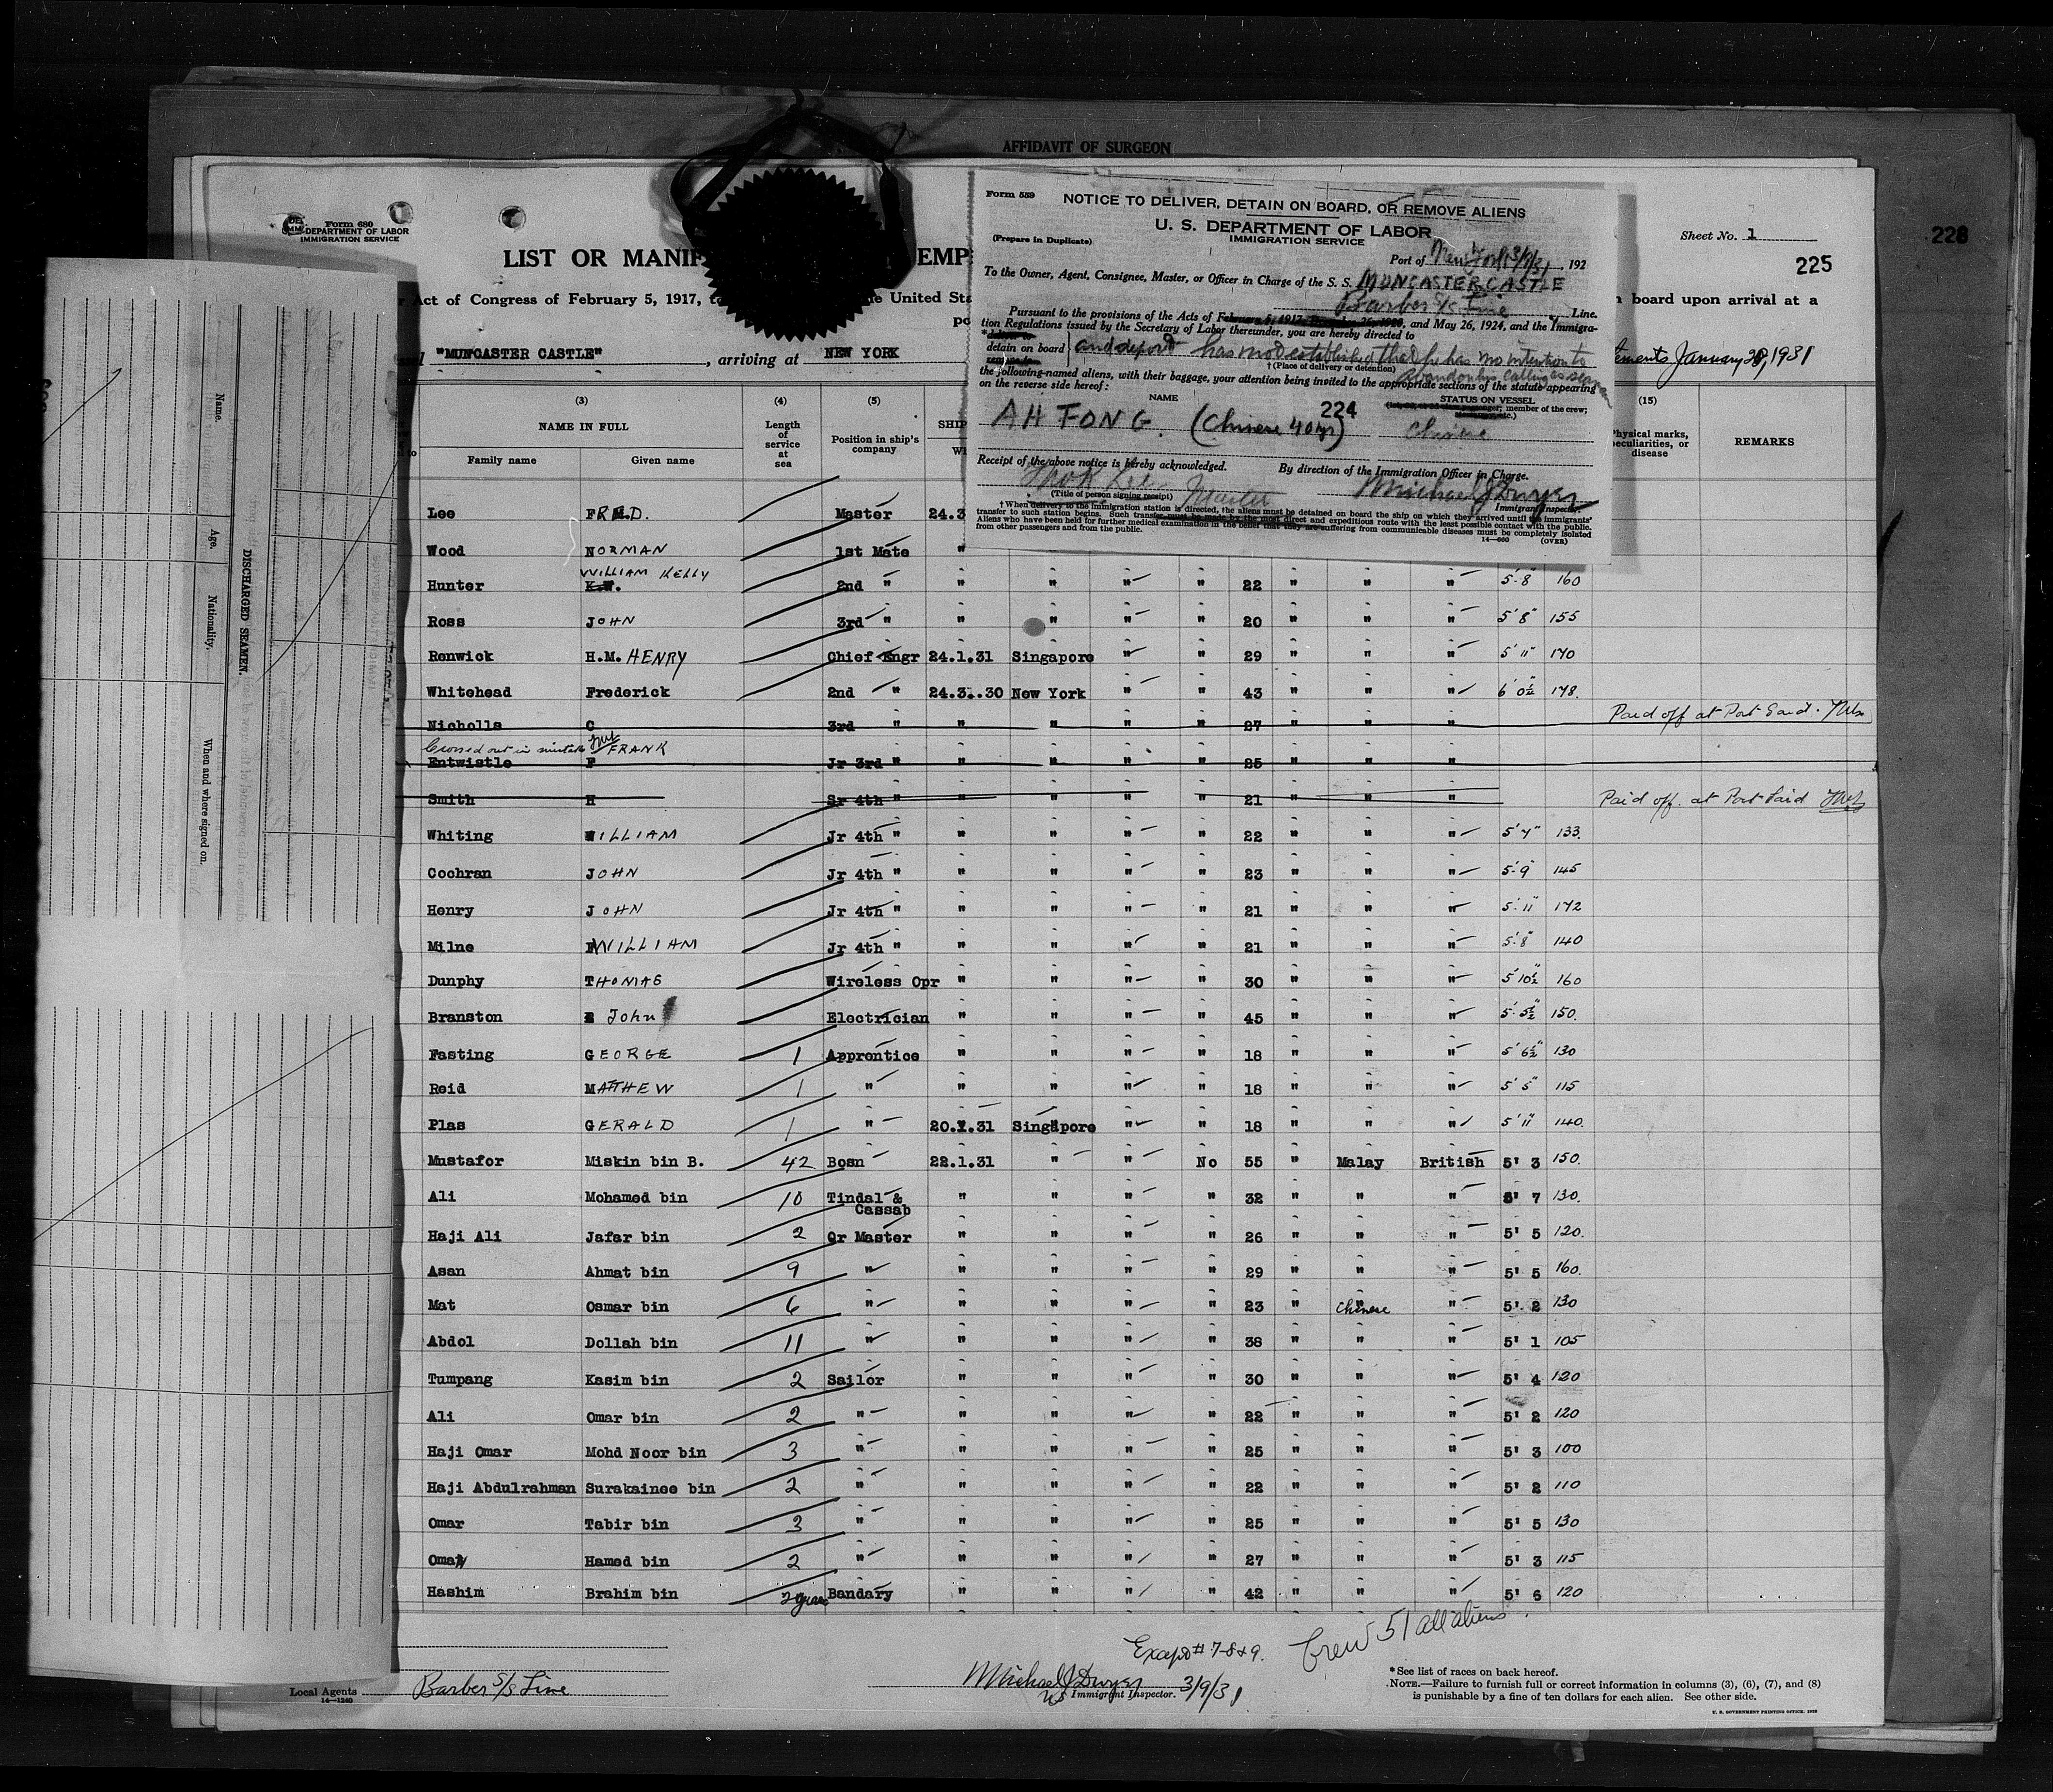 AFFIDAVIT OF SURGEON
Form 680
DEPARTMENT OF LABOR
IMMIGRATION SERVICE
Sheet No. 1
228
225
LIST OR MANIF EMP
Act of Congress of February 5, 1917, t e United Sta board upon arrival at a
po
"MUNCASTER CASTLE", arriving at NEW YORK
January 29, 1931
Form 559
NOTICE TO DELIVER, DETAIN ON BOARD, OR REMOVE ALIENS
U. S. DEPARTMENT OF LABOR
IMMIGRATION SERVICE
(Prepare in Duplicate)
Port of New York 3/9/31, 192
To the Owner, Agent, Consignee, Master, or Officer in Charge of the S. S. MUNCASTER CASTLE
Barber S/S Line Line.
Pursuant to the provisions of the Acts of February 5, 1917, December 26, 1920, and May 26, 1924, and the Immigra-
tion Regulations issued by the Secretary of Labor thereunder, you are hereby directed to
*deliver to
detain on board and deport has not established that he has no intention to
remove to
†(Place of delivery or detention) abandon his calling as seaman
the following-named aliens, with their baggage, your attention being invited to the appropriate sections of the statute appearing
on the reverse side hereof:
NAME STATUS ON VESSEL
member of the crew;
AH FONG. (Chinese 40 yrs) 224 Chinese
Receipt of the above notice is hereby acknowledged. By direction of the Immigration Officer in Charge.
Lee Master Michael J Dwyer
(Title of person signing receipt) Immigrant Inspector.
† When delivery to the immigration station is directed, the aliens must be detained on board the ship on which they arrived until the immigrants'
transfer to such station begins. Such transfer must be made by the most direct and expeditious route with the least possible contact with the public.
Aliens who have been held for further medical examination in the belief that they are suffering from communicable diseases must be completely isolated
from other passengers and from the public.
14—660 (OVER)
(3) (4) (5) (15)
NAME IN FULL Length of service at sea Position in ship's company SHIP Physical marks, peculiarities, or disease REMARKS
Family name Given name
Lee FRED. Master 24.3
Wood NORMAN 1st Mate "
WILLIAM KELLY
Hunter K.W. 2nd " " " " " 22 " " " 5'-8" 160
Ross JOHN 3rd " " " " " 20 " " " 5' 8" 155
Renwick H.M. HENRY Chief Engr 24.1.31 Singapore " " 29 " " " 5' 11" 170
Whitehead Frederick 2nd " 24.3.30 New York " " 43 " " " 6' 0½ 178.
Nicholls C 3rd " " " " " 27 " " " Paid off at Port Said.
Crossed out in mistake FRANK
Entwistle F Jr 3rd " " " " " 25 " " "
Smith H Sr 4th " " " " " 21 " " " Paid off. at Port Said
Whiting WILLIAM Jr 4th " " " " " 22 " " " 5' 7" 133.
Cochran JOHN Jr 4th " " " " " 23 " " " 5-9 145
Henry JOHN Jr 4th " " " " " 21 " " " 5'-11" 172
Milne WILLIAM Jr 4th " " " " " 21 " " " 5'-8" 140
Dunphy THOMAS Wireless Opr " " " " 30 " " " 5' 10½ 160
Branston John Electrician " " " " 45 " " " 5'-5½" 150.
Fasting GEORGE 1 Apprentice " " " " 18 " " " 5' 6½" 130
Reid MATTHEW 1 " " " " " 18 " " " 5' 5" 115
Plas GERALD 1 " 20.1.31 Singapore " " 18 " " " 5' 11" 140.
Mustafor Miskin bin B. 42 Bosn 22.1.31 " " No 55 " Malay British 5' 3 150.
Ali Mohamed bin 10 Tindal & Cassab " " " " 32 " " " 5' 7 130.
Haji Ali Jafar bin 2 Qr Master " " " " 26 " " " 5' 5 120.
Asan Ahmat bin 9 " " " " " 29 " " " 5' 5 160.
Mat Osmar bin 6 " " " " " 23 " Chinese " 5' 2 130
Abdol Dollah bin 11 " " " " " 38 " " " 5' 1 105
Tumpang Kasim bin 2 Sailor " " " " 30 " " " 5' 4 120
Ali Omar bin 2 " " " " " 22 " " " 5' 2 120
Haji Omar Mohd Noor bin 3 " " " " " 25 " " " 5' 3 100
Haji Abdulrahman Surakainee bin 2 " " " " " 22 " " " 5' 2 110
Omar Tabir bin 3 " " " " " 25 " " " 5' 5 130
Omar Hamed bin 2 " " " " " 27 " " " 5' 3 115
Hashim Brahim bin 2 years Bandary " " " " 42 " " " 5' 6 120
Except # 7-8&9. Crew 51 all aliens.
Local Agents Barber S/S Line
14—1240
Michael J Dwyer
US Immigrant Inspector. 3/9/31
*See list of races on back hereof.
NOTE.—Failure to furnish full or correct information in columns (3), (6), (7), and (8)
is punishable by a fine of ten dollars for each alien. See other side.
U. S. GOVERNMENT PRINTING OFFICE: 1928
DISCHARGED SEAMEN.
Name. Age. Nationality. When and where signed on.